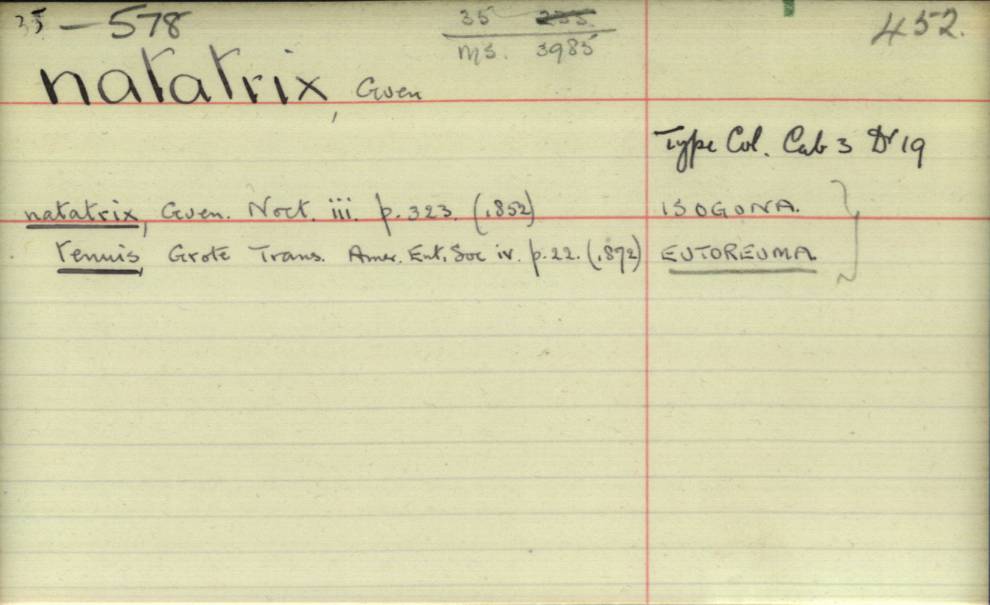 35 — 578
35 235
ms. 3985
452.
natatrix, Guen
Type Col. Cab 3 Dr 19
natatrix, Guen. Noct. iii. p. 323. (1852) ISOGONA.
tenuis, Grote Trans. Amer. Ent. Soc iv. p. 22. (1872) EUTOREUMA